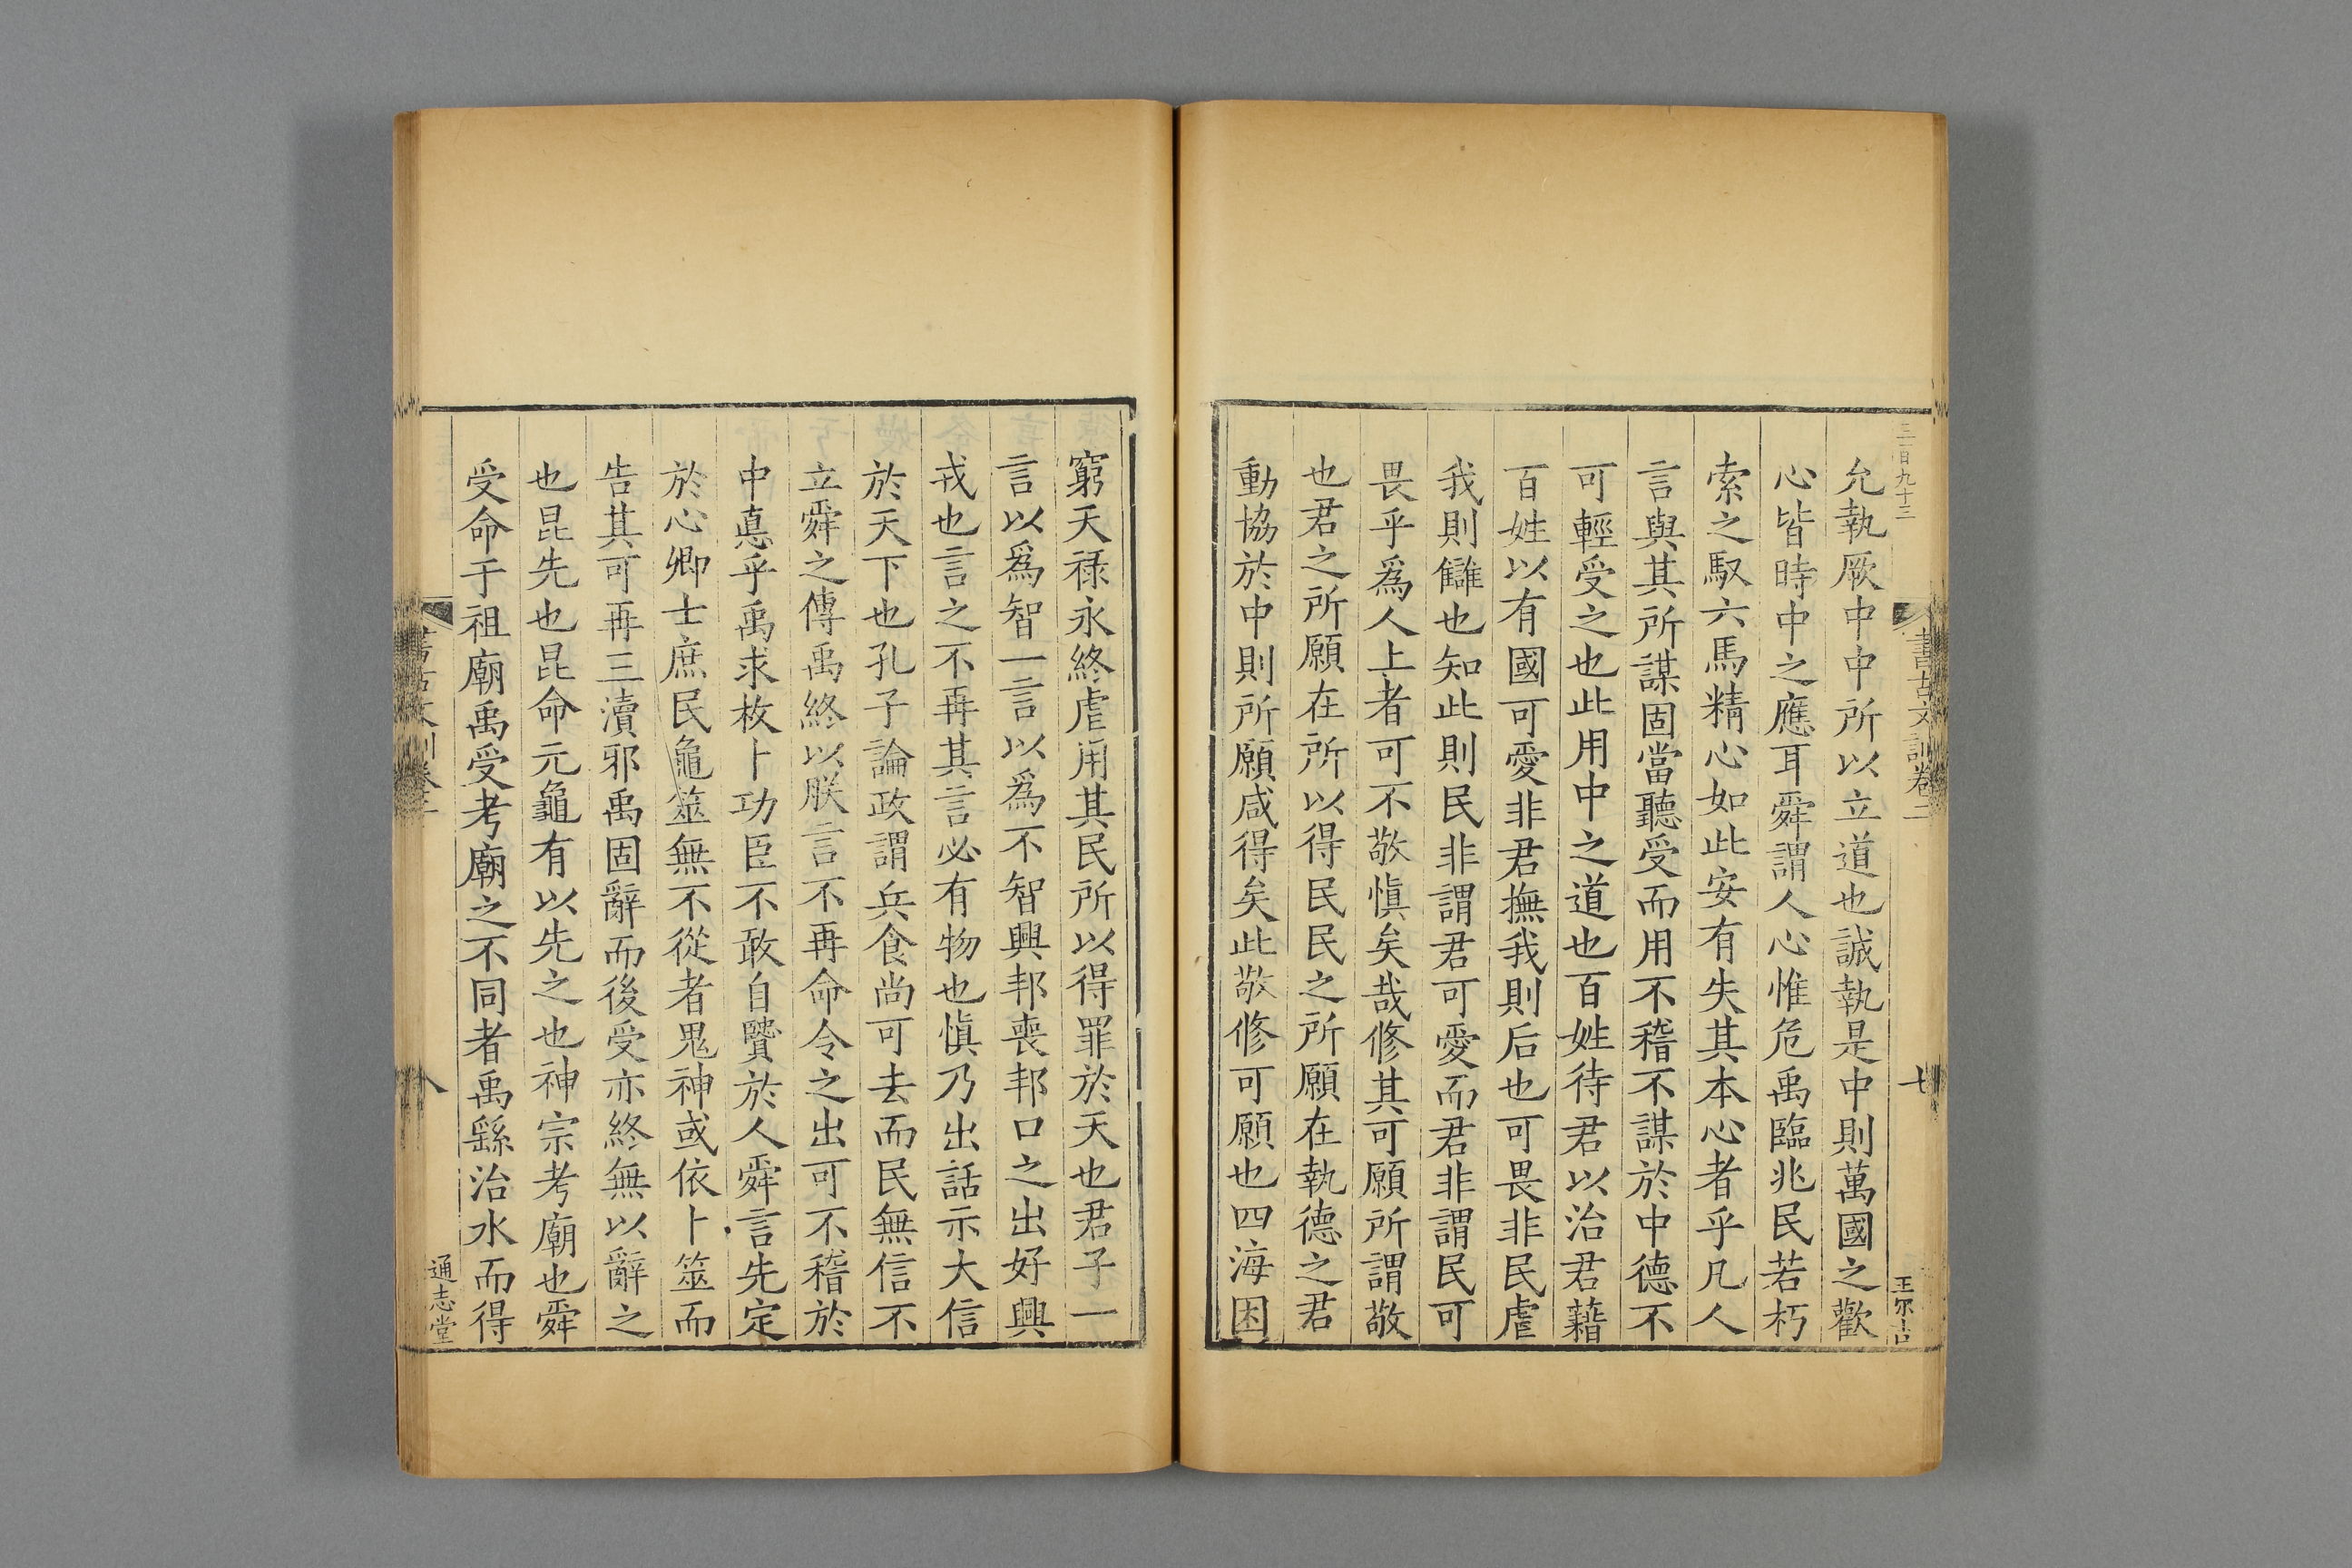 三百九十三
允執厥中中所以立道也誠執是中則萬國之歡
心皆時中之應耳舜謂人心惟危禹臨兆民若朽
索之馭六馬精心如此安有失其本心者乎凡人
言與其所謀固當聽受而用不稽不謀於中德不
可輕受之也此用中之道也百姓待君以治君藉
百姓以有國可愛非君撫我則后也可畏非民虐
我則讎也知此則民非謂君可愛而君非謂民可
畏乎爲人上者可不敬慎矣哉修其可願所謂敬
也君之所願在所以得民民之所願在執德之君
動協於中則所願咸得矣此敬修可願也四海困
書古文訓卷二
七
窮天祿永終虐用其民所以得罪於天也君子一
言以爲智一言以爲不智興邦喪邦口之出好興
戎也言之不再其言必有物也慎乃出話示大信
於天下也孔子論政謂兵食尚可去而民無信不
立舜之傳禹終以朕言不再命令之出可不稽於
中惪乎禹求枚卜功臣不敢自賢於人舜言先定
於心卿士庶民龜筮無不從者鬼神或依卜筮而
告其可再三瀆邪禹固辭而後受亦終無以辭之
也昆先也昆命元龜有以先之也神宗考廟也舜
受命于祖廟禹受考廟之不同者禹繇治水而得
八
通志堂